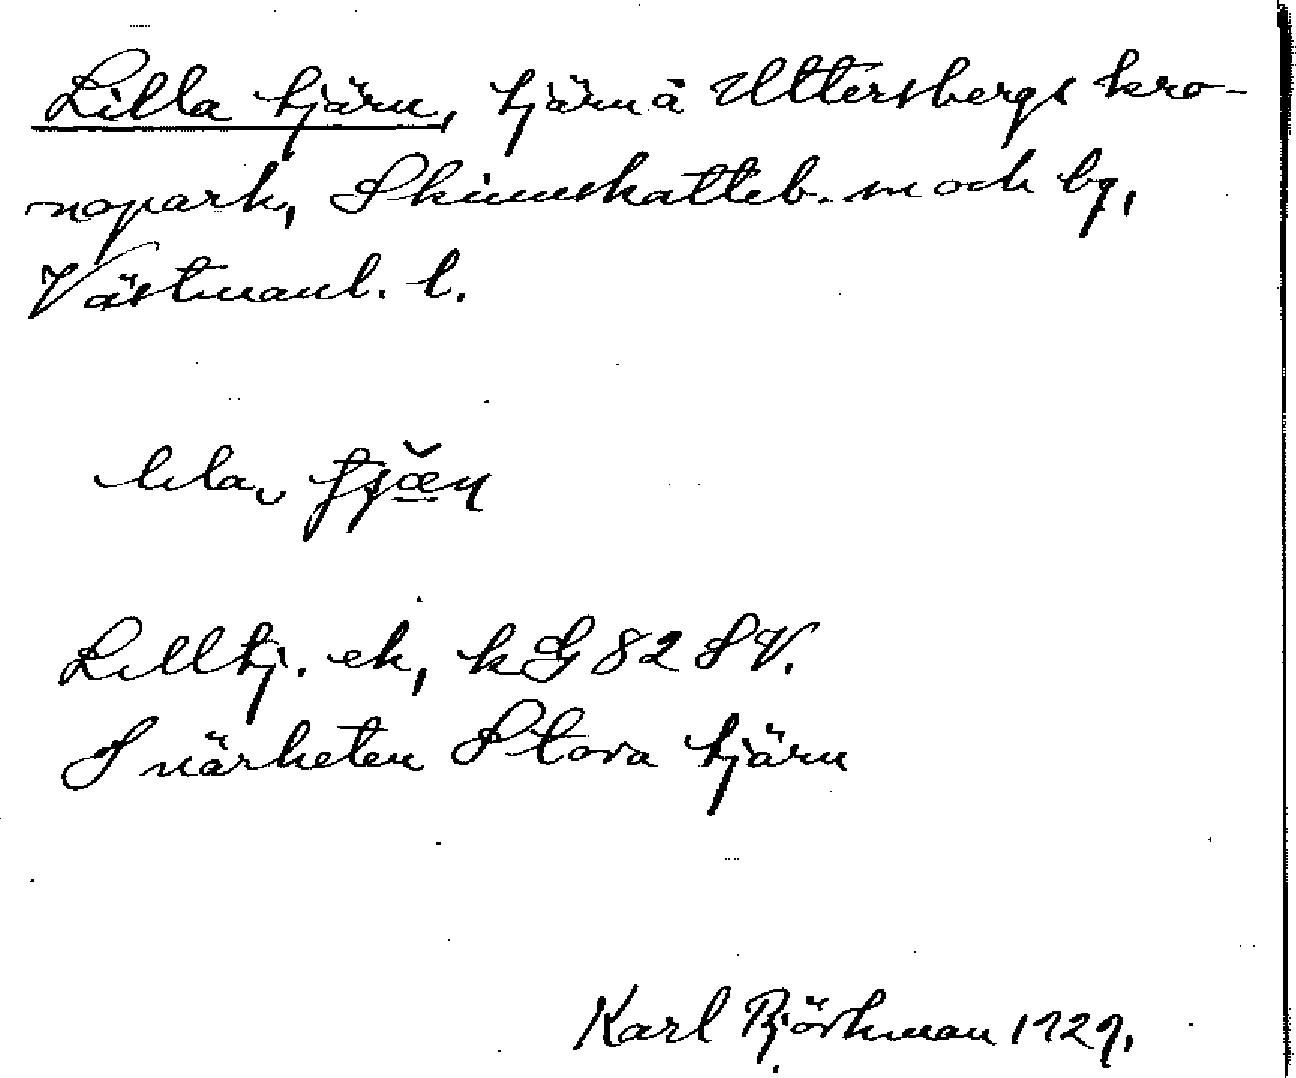 Lilla tjärn, tjärn å Uttersbergs kro-
nopark, Skinnskatteb. sn och bg,
Västmanl. l.
lila, tjæ̌n
Lilltj. ek, kG 82 SV.
I närheten Stora tjärn
Karl Björkman 1929.